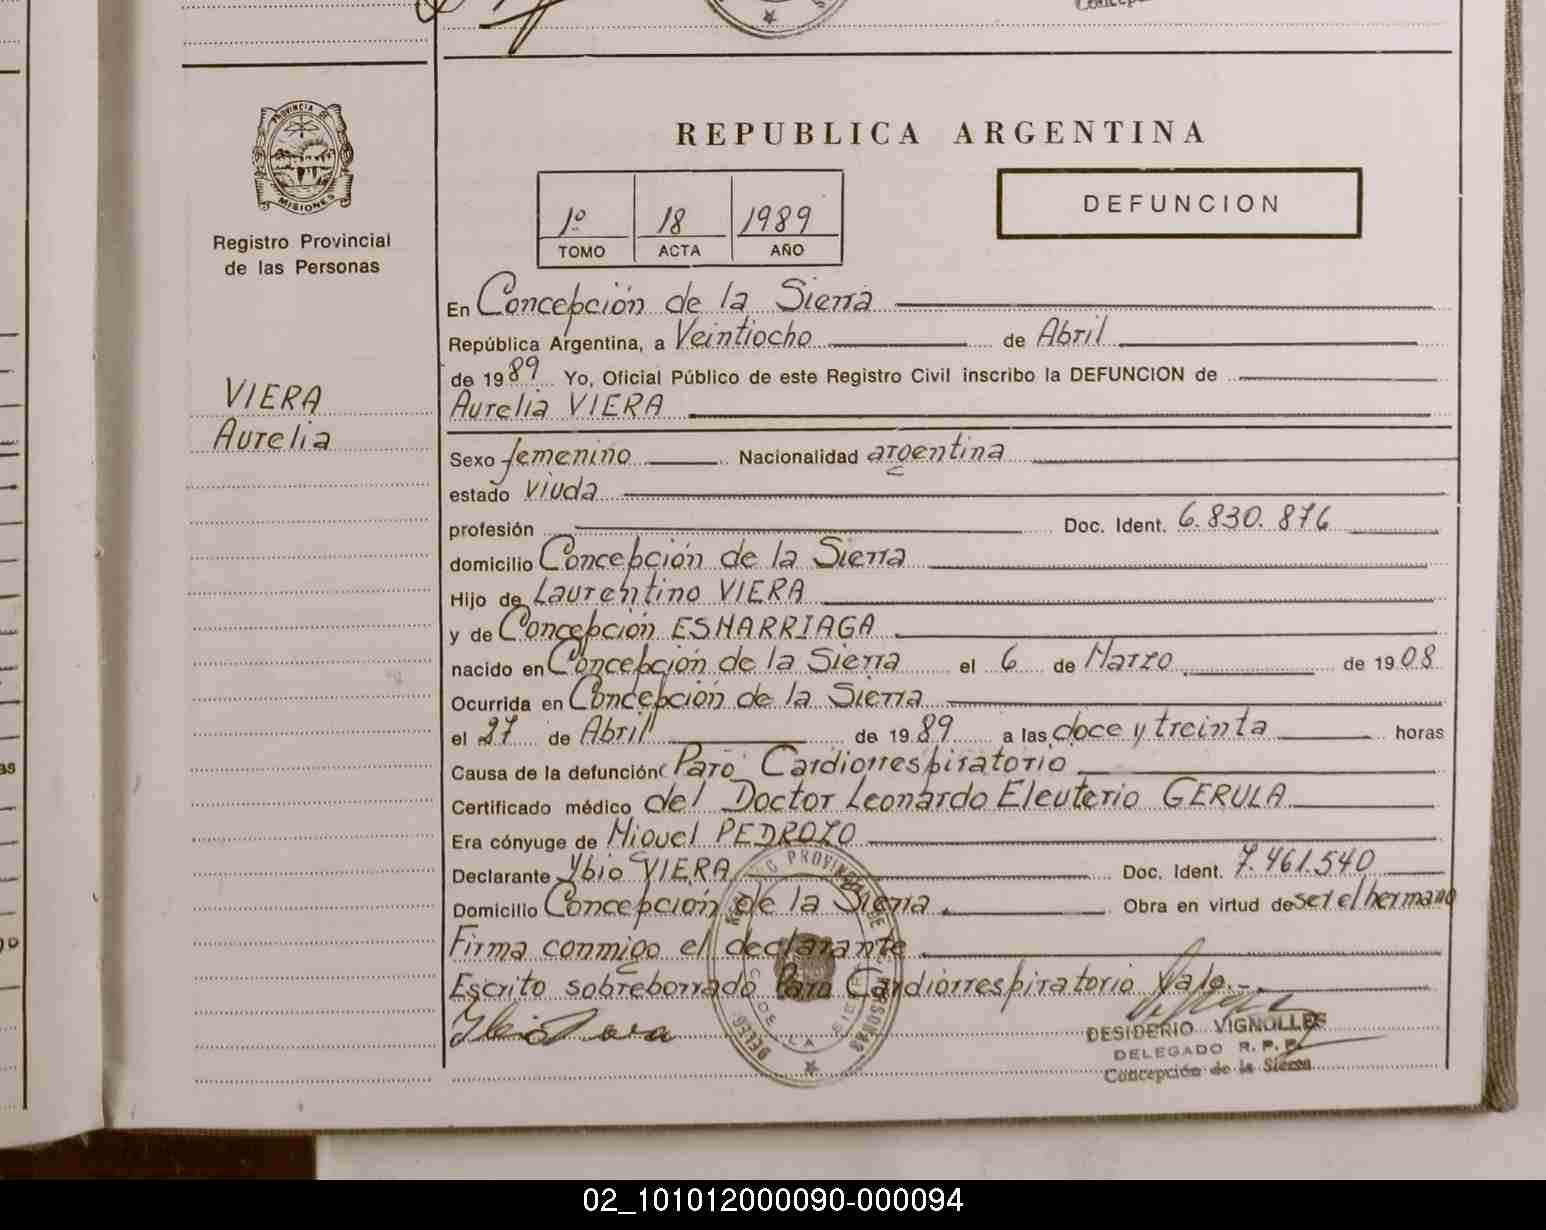 PROVINCIA DE
MISIONES
Registro Provincial
de las Personas
VIERA
Aurelia
REPUBLICA ARGENTINA
1º 18 1989
TOMO ACTA AÑO
DEFUNCION
En Concepción de la Sierra
República Argentina, a Veintiocho de Abril
de 1989 Yo, Oficial Público de este Registro Civil inscribo la DEFUNCION de
Aurelia VIERA
Sexo femenino Nacionalidad argentina
estado viuda
profesión Doc. Ident. 6.830.876
domicilio Concepción de la Sierra
Hijo de Laurentino VIERA
y de Concepción ESMARRIAGA
nacido en Concepción de la Sierra el 6 de Marzo de 1908
Ocurrida en Concepción de la Sierra
el 27 de Abril de 1989 a las doce y treinta horas
Causa de la defunción Paro Cardiorrespiratorio
Certificado médico del Doctor Leonardo Eleuterio GERULA
Era cónyuge de Miguel PEDROZO
Declarante Ybio VIERA Doc. Ident. 7.461.540
Domicilio Concepción de la Sierra Obra en virtud de ser el hermano
Firma conmigo el declarante
Escrito sobreborrado Paro Cardiorrespiratorio Vale.-
DESIDERIO VIGNOLLES
DELEGADO R. P. P.
Concepción de la Sierra
02_101012000090-000094